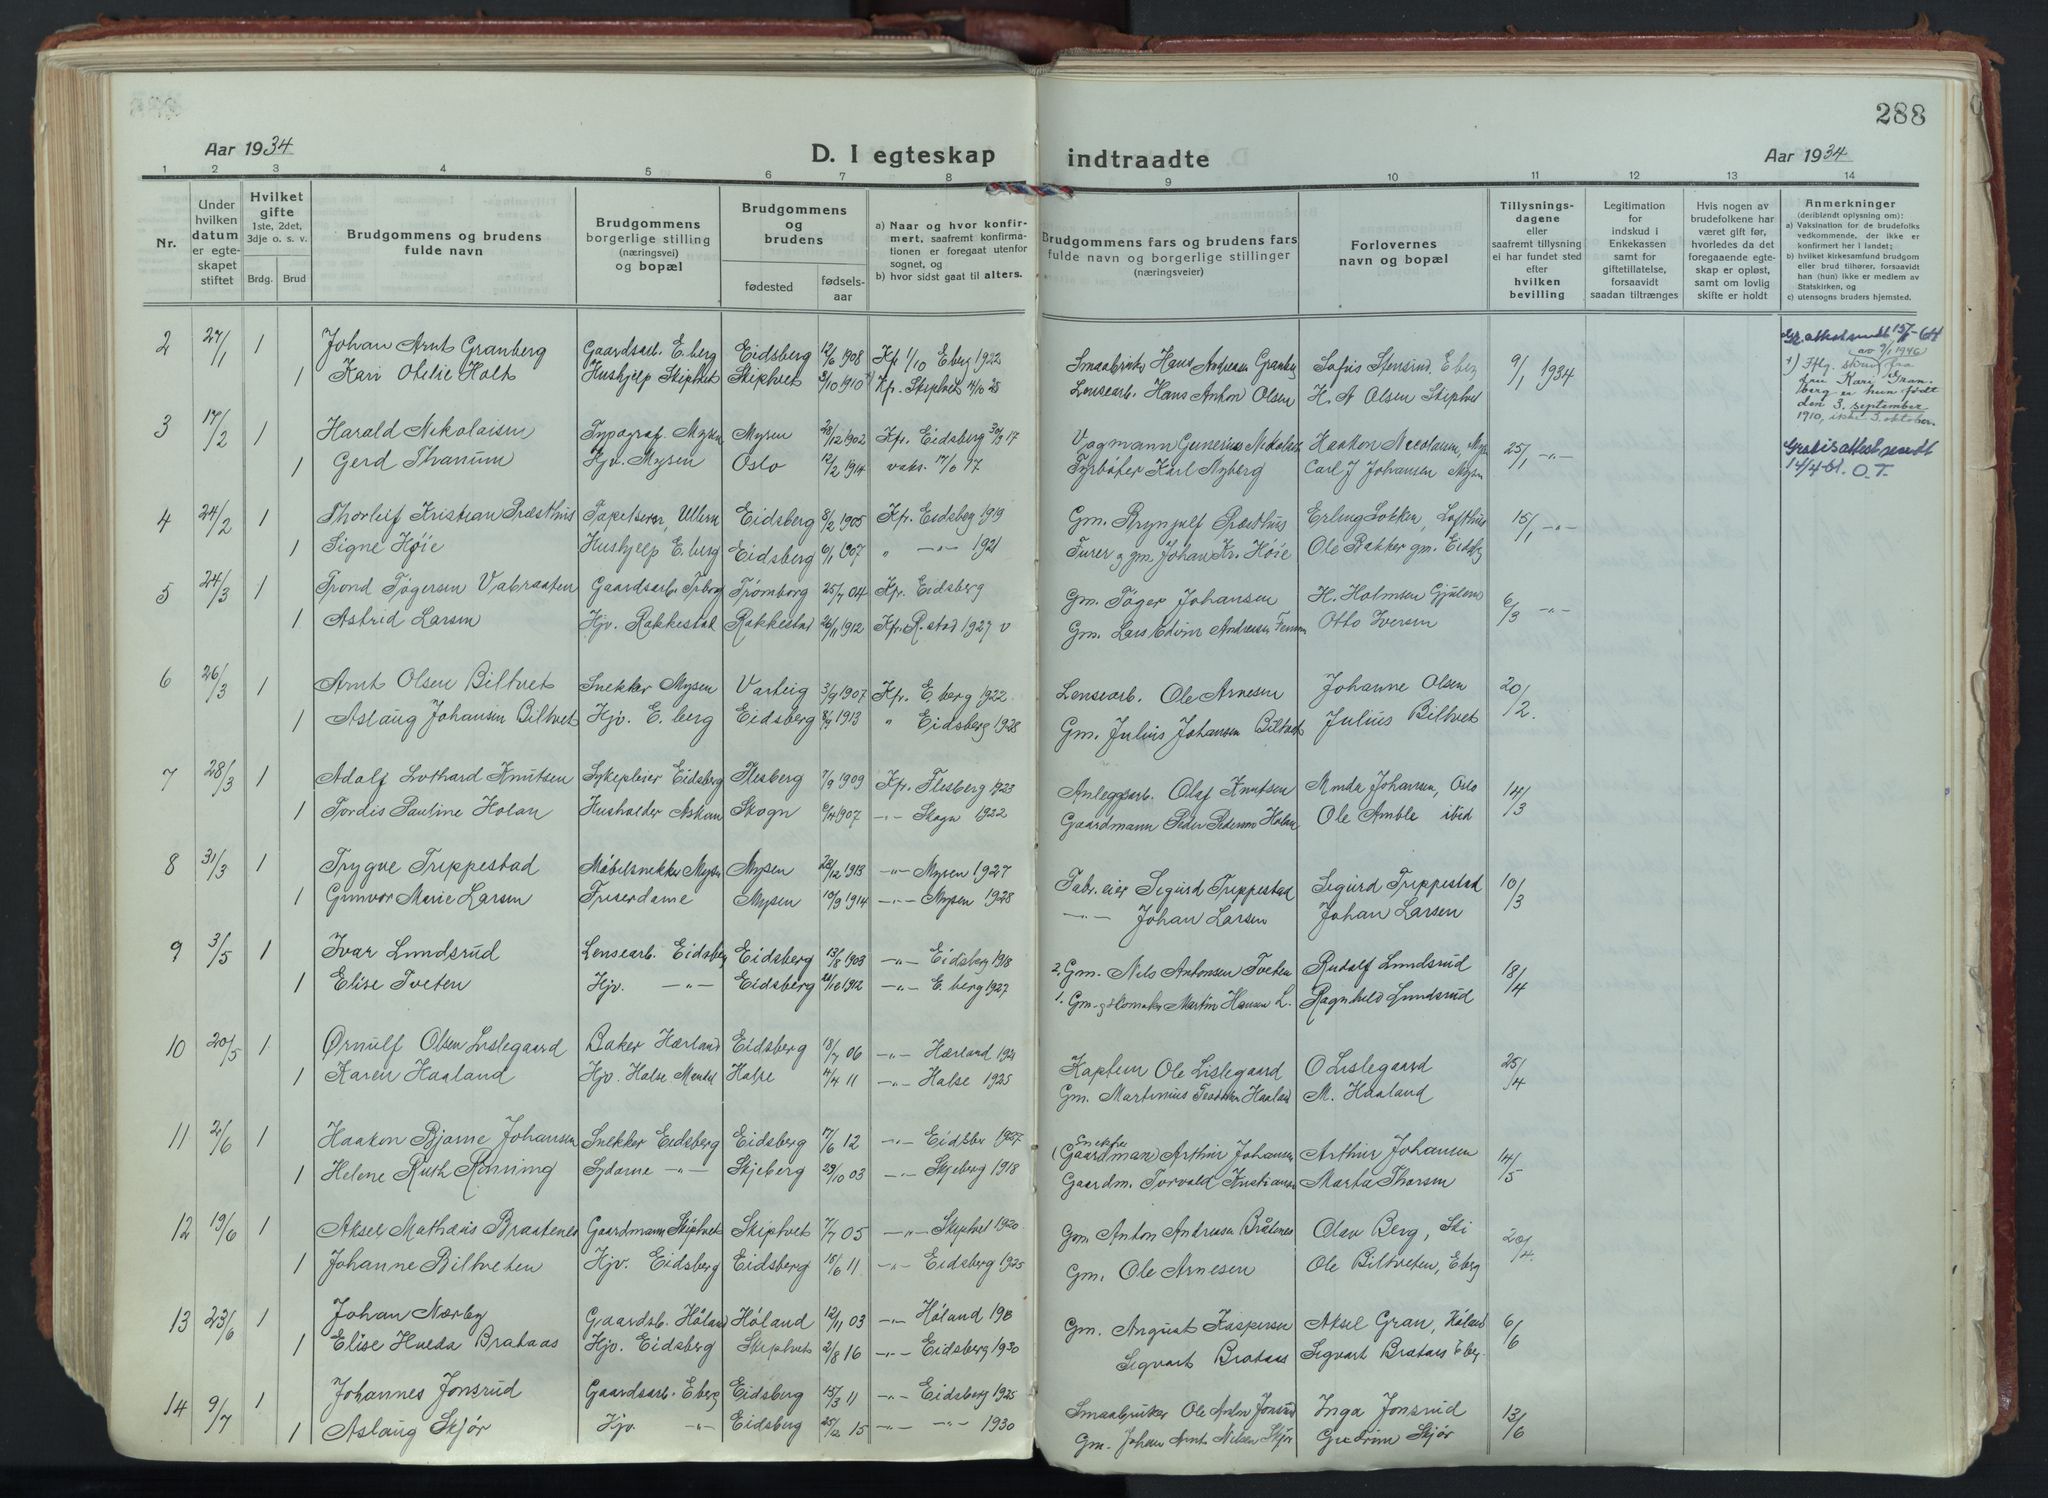 288
Aar 1934
D. I egteskap
indtraadte
Aar 1934
1 2 3 4 5 6 7 8 9 10 11 12 13 14
Nr.
Under hvilken datum er egteskapet stiftet
Hvilket gifte 1ste, 2det, 3dje o. s. v.
Brdg. Brud
Brudgommens og brudens fulde navn
Brudgommens borgerlige stilling (næringsvei) og bopæl
Brudgommens og brudens
fødested
fødselsaar
a) Naar og hvor konfirmert, saafremt konfirmationen er foregaat utenfor sognet, og
b) hvor sidst gaat til alters.
Brudgommens fars og brudens fars fulde navn og borgerlige stillinger (næringsveier)
Forlovernes navn og bopæl
Tillysningsdagene eller saafremt tillysning ei har fundet sted efter hvilken bevilling
Legitimation for indskud i Enkekassen samt for giftetillatelse, forsaavidt saadan tiltrænges
Hvis nogen av brudefolkene har været gift før, hvorledes da det foregaaende egteskap er opløst, samt om lovlig skifte er holdt
Anmerkninger (deriblandt oplysning om):
a) Vaksination for de brudefolks vedkommende, der ikke er konfirmert her i landet;
b) hvilket kirkesamfund brudgom eller brud tilhører, forsaavidt han (hun) ikke er medlem av Statskirken, og
c) utensogns bruders hjemsted.
2 27/1 1 Johan Arnt Granberg Gaardsarb. E.berg Eidsberg 12/6 1908 Kf 1/10 Eberg 1922 Smaabruker Hans Andreasen Granberg Sofus Stensrud, Eberg 9/1 1934
1 Kari Otelie Holt Hushjelp Skiptvet Skiptvet 3/10 1910 Kfr. Skiptvet 4/10 25 Lensearb. Hans Anton Olsen H. A Olsen Skiptvet
av 9/1 1946
den Kari Granberg er hun født den 3. september 1910, ikke 3. oktober.
3 17/2 1 Harald Nikolaisen Typograf. Mysen Mysen 28/12 1902 Kfr. Eidsberg 30/9 17 Vognmann Gunerius Nikolaisen Haakon Nicolaisen, Mysen 25/1 -"-
1 Gerd Thanum Hjv. Mysen Oslo 12/2 1914 vaks. Fyrbøter Karl Nyberg Carl J Johansen Mysen
Gratis attest sendt 14/4-51. O.T.
4 24/2 1 Thorleif Kristian Præsthus Ullern Eidsberg 8/2 1905 Kfr. Eidsberg 1919 Gm. Brynjulf Præsthus Erling Løkken, Lofthus 15/1 -"-
1 Signe Høie Hushjelp E.berg Eidsberg 6/1 1907 " -"- 1921 Furer og gm. Johan Kr. Høie Ole Bakker gm. Eidsbg
5 24/3 1 Trond Tøgersen Vabraaten Gaardsarb. Trborg Trømborg 25/7 04 Kfr. Eidsberg Gm. Tøger Johansen H. Holmsen Gjulem 6/3 -"-
1 Astrid Larsen Hjv. Rakkestad Rakkestad 26/11 1912 Kfr. R.stad 1927 v Gm. Lars Edvin Andreasen Otto Iversen
6 26/3 1 Arnt Olsen Biltvet Snekker Mysen Varteig 3/9 1907 Kfr. E.berg 1922 Lensearb. Ole Arnesen Johanne Olsen 20/2.
1 Aslaug Johansen Biltvet Hjv. E.berg Eidsberg 1913 " Eidsberg 1928 Gm. Julius Johansen Biltvet Julius Biltvet
7 28/3 1 Adolf Lothard Knutsen Sykepleier Eidsberg Flesberg 7/9 1909 Kfr. Flesberg 1923 Anleggsarb. Olaf Knutsen Amda Johansen, Oslo 14/3
1 Tordis Pauline Holan Husholder Askim Skogn 6/4 1907 -"- Skogn 1922 Gaardmann Peder Pedersen Holan Ole Amble ibid
8 31/3 1 Trygve Trippestad Møbelsnekker Mysen Mysen 28/12 1913 -"- Mysen 1927 Fabr. eier Sigurd Trippestad Sigurd Trippestad 10/3
1 Gunvor Marie Larsen Friserdame Mysen 10/9 1914 -"- Mysen 1928 -"- Johan Larsen Johan Larsen
9 3/5 1 Ivar Lundsrud Lensearb. Eidsberg Eidsberg 13/8 1903 -"- Eidsberg 1918 2. Gm. Nils Antonsen Tveten Rudolf Lundsrud 18/4
1 Elise Tveten Hjv. -"- Eidsberg 1912 -"- E.berg 1927 1. Gm. og skomaker Martin Hansen L. Ragnhild Lundsrud
10 20/5 1 Ørnulf Olsen Lislegaard Baker Hærland Eidsberg 18/7 06 -"- Hærland 1921 Kaptein Ole Lislegaard O Lislegaard 25/4
1 Karen Haaland Hjv. Halse Mandal Halse 4/4 11 -"- Halse 1925 Gm. Martinius Haaland M. Haaland
11 2/6 1 Haakon Bjarne Johansen Snekker Eidsberg Eidsberg 17/6 12 -"- Eidsber 1927 Snekker (Gaardman) Arthur Johansen Arthur Johansen 14/5
1 Helene Ruth Rønning Sydame -"- Skjeberg 29/10 03 -"- Skjeberg 1918 Gaardm. Torvald Kristiansen Marta Thorsen
12 19/6 1 Aksel Mathæus Braatenes Gaardmann Skiptvet Skiptvet 7/7 05 -"- Skiptvet 1920 Gm Anton Andreasen Bråtenes Olav Berg, Ski 20/4.
1 Johanne Biltveten Hjv. Eidsberg Eidsberg 15/6 11 -"- Eidsberg 1925 Gm. Ole Arnesen Ole Biltveten, Eberg
13 23/6 1 Johan Nærby Gaardsb. Høland Høland 12/11 03 -"- Høland 1918 Gm. August Kaspersen Aksel Gran, Høland 6/6
1 Elise Hveda Brataas Hjv. Eidsberg Skiptvet 2/8 16 -"- Eidsberg 1930 Sigvart Brataas Sigvart Brataas Eberg.
14 9/7 1 Johannes Jonsrud Gaardsarb. Eberg Eidsberg 15/3 11 -"- Eidsberg 1925 Smaabruker Ole Anton Jonsrud Inga Jonsrud 13/6
1 Aslaug Skjør Hjv. -"- Eidsberg 25/12 15 -"- -"- 1930 Gm. Johan Arnt Nilsen Skjør Gudrun Skjør